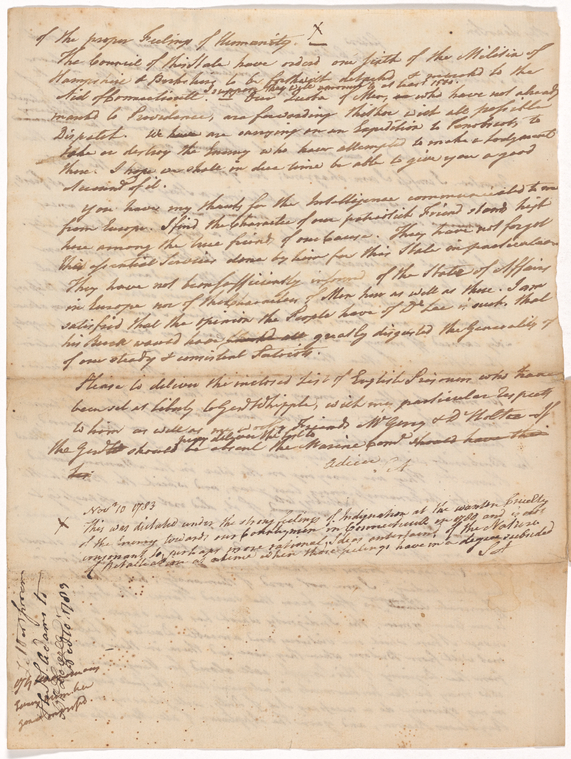 of the proper Feelings of Humanity. X
The Council of this State have ordered one sixth of the Militia of
Hampshire & Berkshire to be forthwith detachd & marchd to the
I suppose they will amount to at least 1500.
Aid of Connecticutt. Our Quota of Men, who have not already
marchd to Providence, are forwarding thither with all possible
Dispatch. We are carrying on an Expedition to Penobscott, to
take or destroy the Enemy who have attempted to make a Lodgment
there. I hope we shall in due time be able to give you a good
Account of it.
You have my thanks for the Intelligence communicated to me
from Europe. I find the Character of our patriotick Friend stands high
here among the true friends of our Cause. They have not forgot
the essential Services done by him for this State in particular
They have not been sufficiently informd of the State of Affairs
in Europe nor of the Characters of Men here as well as there. I am
satisfied that the opinion the People have of Dr Lee is such, that
his would have greatly disgusted the Generality of
of our steady & consistent Patriots.
Please to deliver the inclosed List of English Prisoners who have
been set at Liberty to Genl Whipple, with my particular Respects
to him as well as my worthy Friends Mr Gerry & Dr Holten. If
pray deliver the List to
the Genl should be absent the Marine Come should have the
Adieu
SA
Novr 10 1783
X This was dictated under the strong feelings of Indignation at the wanton Cruelty
of the Enemy towards our Countrymen in Connecticutt in and is not
consonant to, perhaps more rational Ideas entertaind of the Nature
of Retaliation at a time when those feelings have in a degree subsided
S A
S Adams to